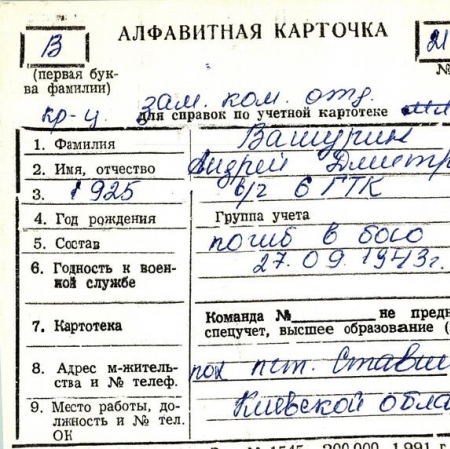 В АЛФАВИТНАЯ КАРТОЧКА 21
(первая бук-
ва фамилии) №
кр-ц. зам. ком. отд.
для справок по учетной картотеке
1. Фамилия Вашурин
2. Имя, отчество Андрей Дмитр
3. 1925 в/г 6 ГТК
4. Год рождения Группа учета
5. Состав погиб в бою
6. Годность к воен-
ной службе 27.09.1943г.
7. Картотека Команда № не предн
спецучет, высшее образование (
8. Адрес м-житель-
ства и № телеф. пох пст. Стави
9. Место работы, до-
лжность и № тел.
ОК Киевской обла
№ 1545 200.000 1991 г.